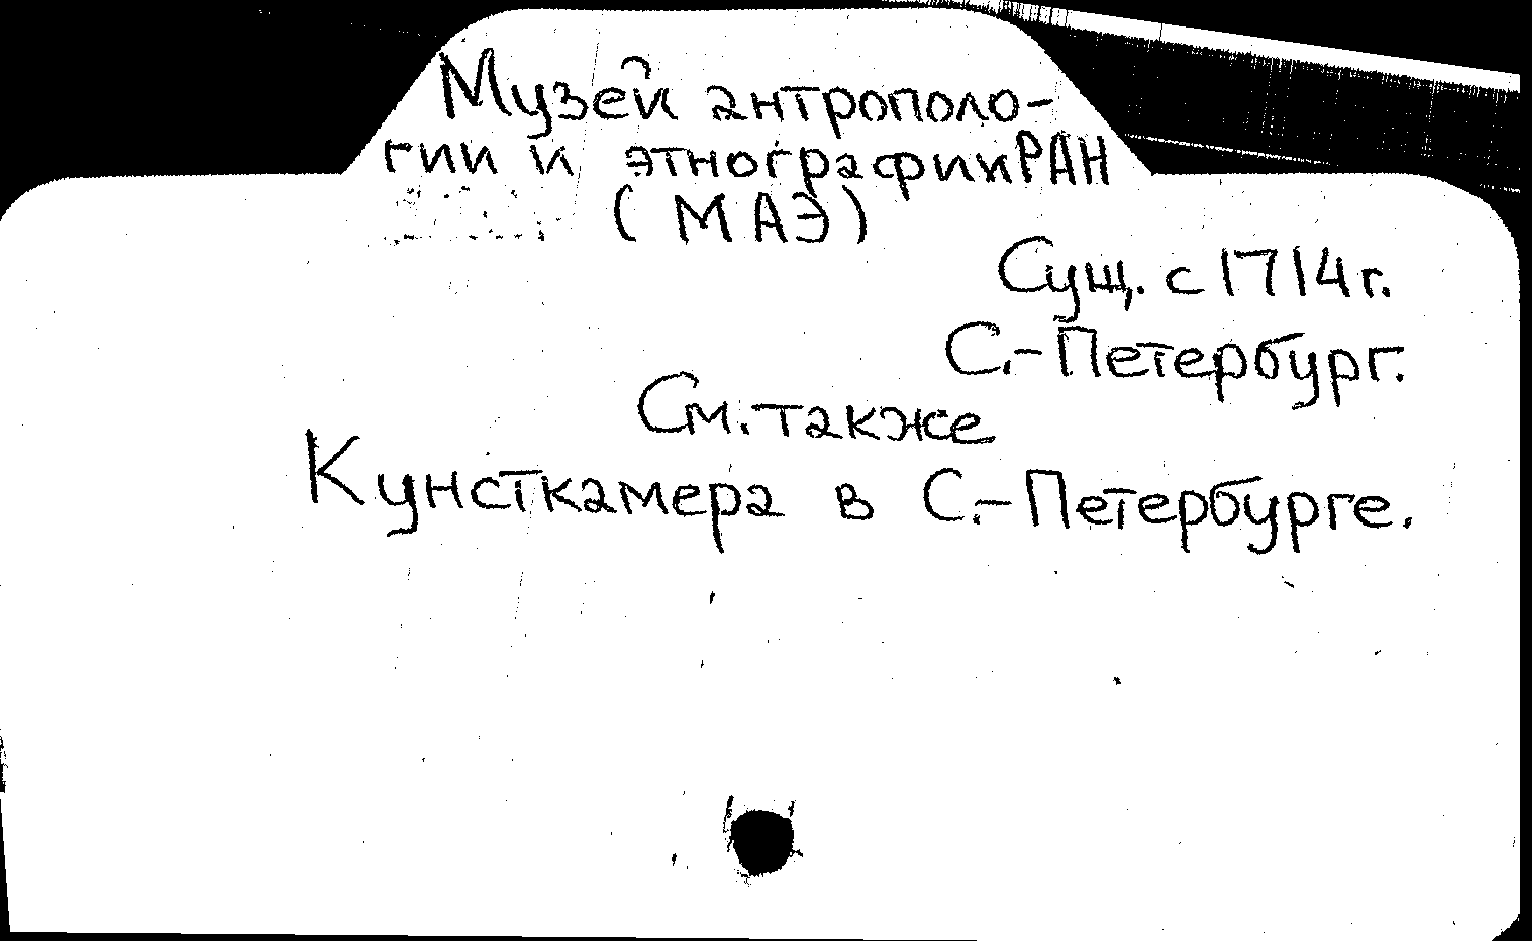 Музей антрополо-
гии и этнографии РАН
(МАЭ)
Сущ. с 1714 г.
С.-Петербург.
См. также
Кунсткамера в С.-Петербурге.